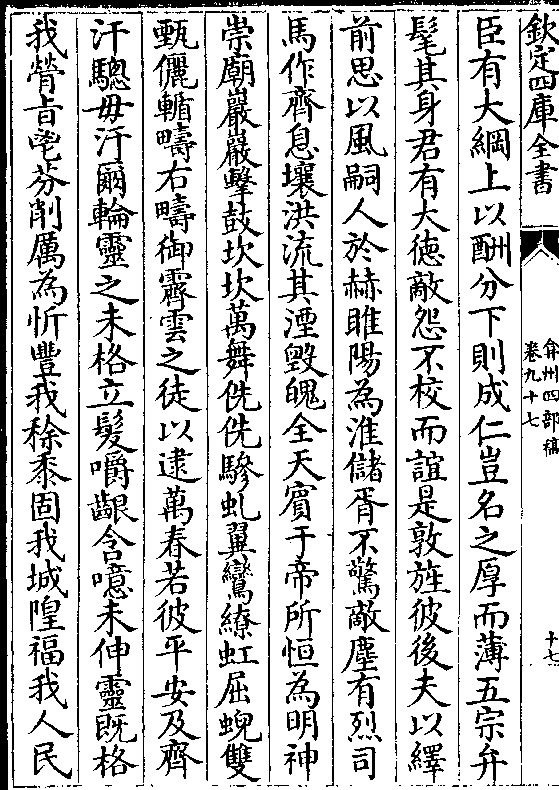 欽定四庫全書
弇州四部稿
卷九十七
十七
臣有大綱上以酬分下則成仁豈名之厚而薄五宗弁
髦其身君有大徳敵怨不校而誼是敦旌彼後夫以繹
前思以風嗣人於赫睢陽為淮儲胥不驚敵塵有烈司
馬作齊息壤洪流其湮毀魄全天賓于帝所恒為明神
崇廟巖巖擊鼓坎坎萬舞侁侁驂虬翼鸞繚虹屈蜺雙
甄儷輴疇右疇御霽雲之徒以逮萬春若彼平安及齊
汗驄毋汗爾輪靈之未格立髮嚼齦含噫未伸靈既格
我膋㫖毖芬削厲為忻豐我稌黍固我城隍福我人民